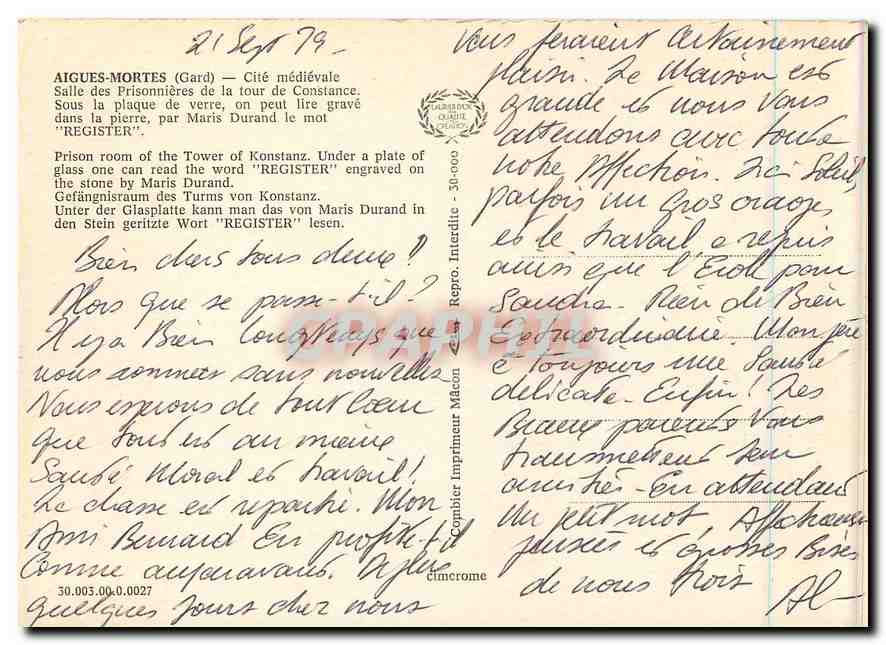 21 Sept 79 -
AIGUES-MORTES (Gard) — Cité médiévale
Salle des Prisonnières de la tour de Constance.
Sous la plaque de verre, on peut lire gravé
dans la pierre, par Maris Durand le mot
"REGISTER".
Prison room of the Tower of Konstanz. Under a plate of
glass one can read the word "REGISTER" engraved on
the stone by Maris Durand.
Gefängnisraum des Turms von Konstanz.
Unter der Glasplatte kann man das von Maris Durand in
den Stein geritzte Wort "REGISTER" lesen.
Bien chers tous deux !
Alors que se passe-t-il ?
Il y a Bien longtemps que
nous sommes sans nouvelles
Nous espérons de tout Cœur
que tout est au même
Santé Moral et travail !
La chasse est repartie. Mon
Ami Bernard En profite-t-il
Comme auparavant.
quelques jours chez nous
30.003.00.0.0027
cimcrome
LAURIER D'OR
DE QUALITÉ
CRÉATION
Combier Imprimeur Mâcon
Repro. Interdite - 30-000
GRAPHIL
Vous feraient certainement
plaisir. La Maison est
grande et nous Vous
attendons avec toute
notre Affection. Ici Soleil,
parfois un Gros orages
et le travail a repris
ainsi que l'Ecole pour
Sandra - Rien de Bien
extraordinaire. Mon père
a Toujours une Santé
délicate - Enfin ! Les
Beaux parents Vous
transmettent leur
amitiés - En attendant
Un petit mot,
pensées et Grosses Bises
de nous trois